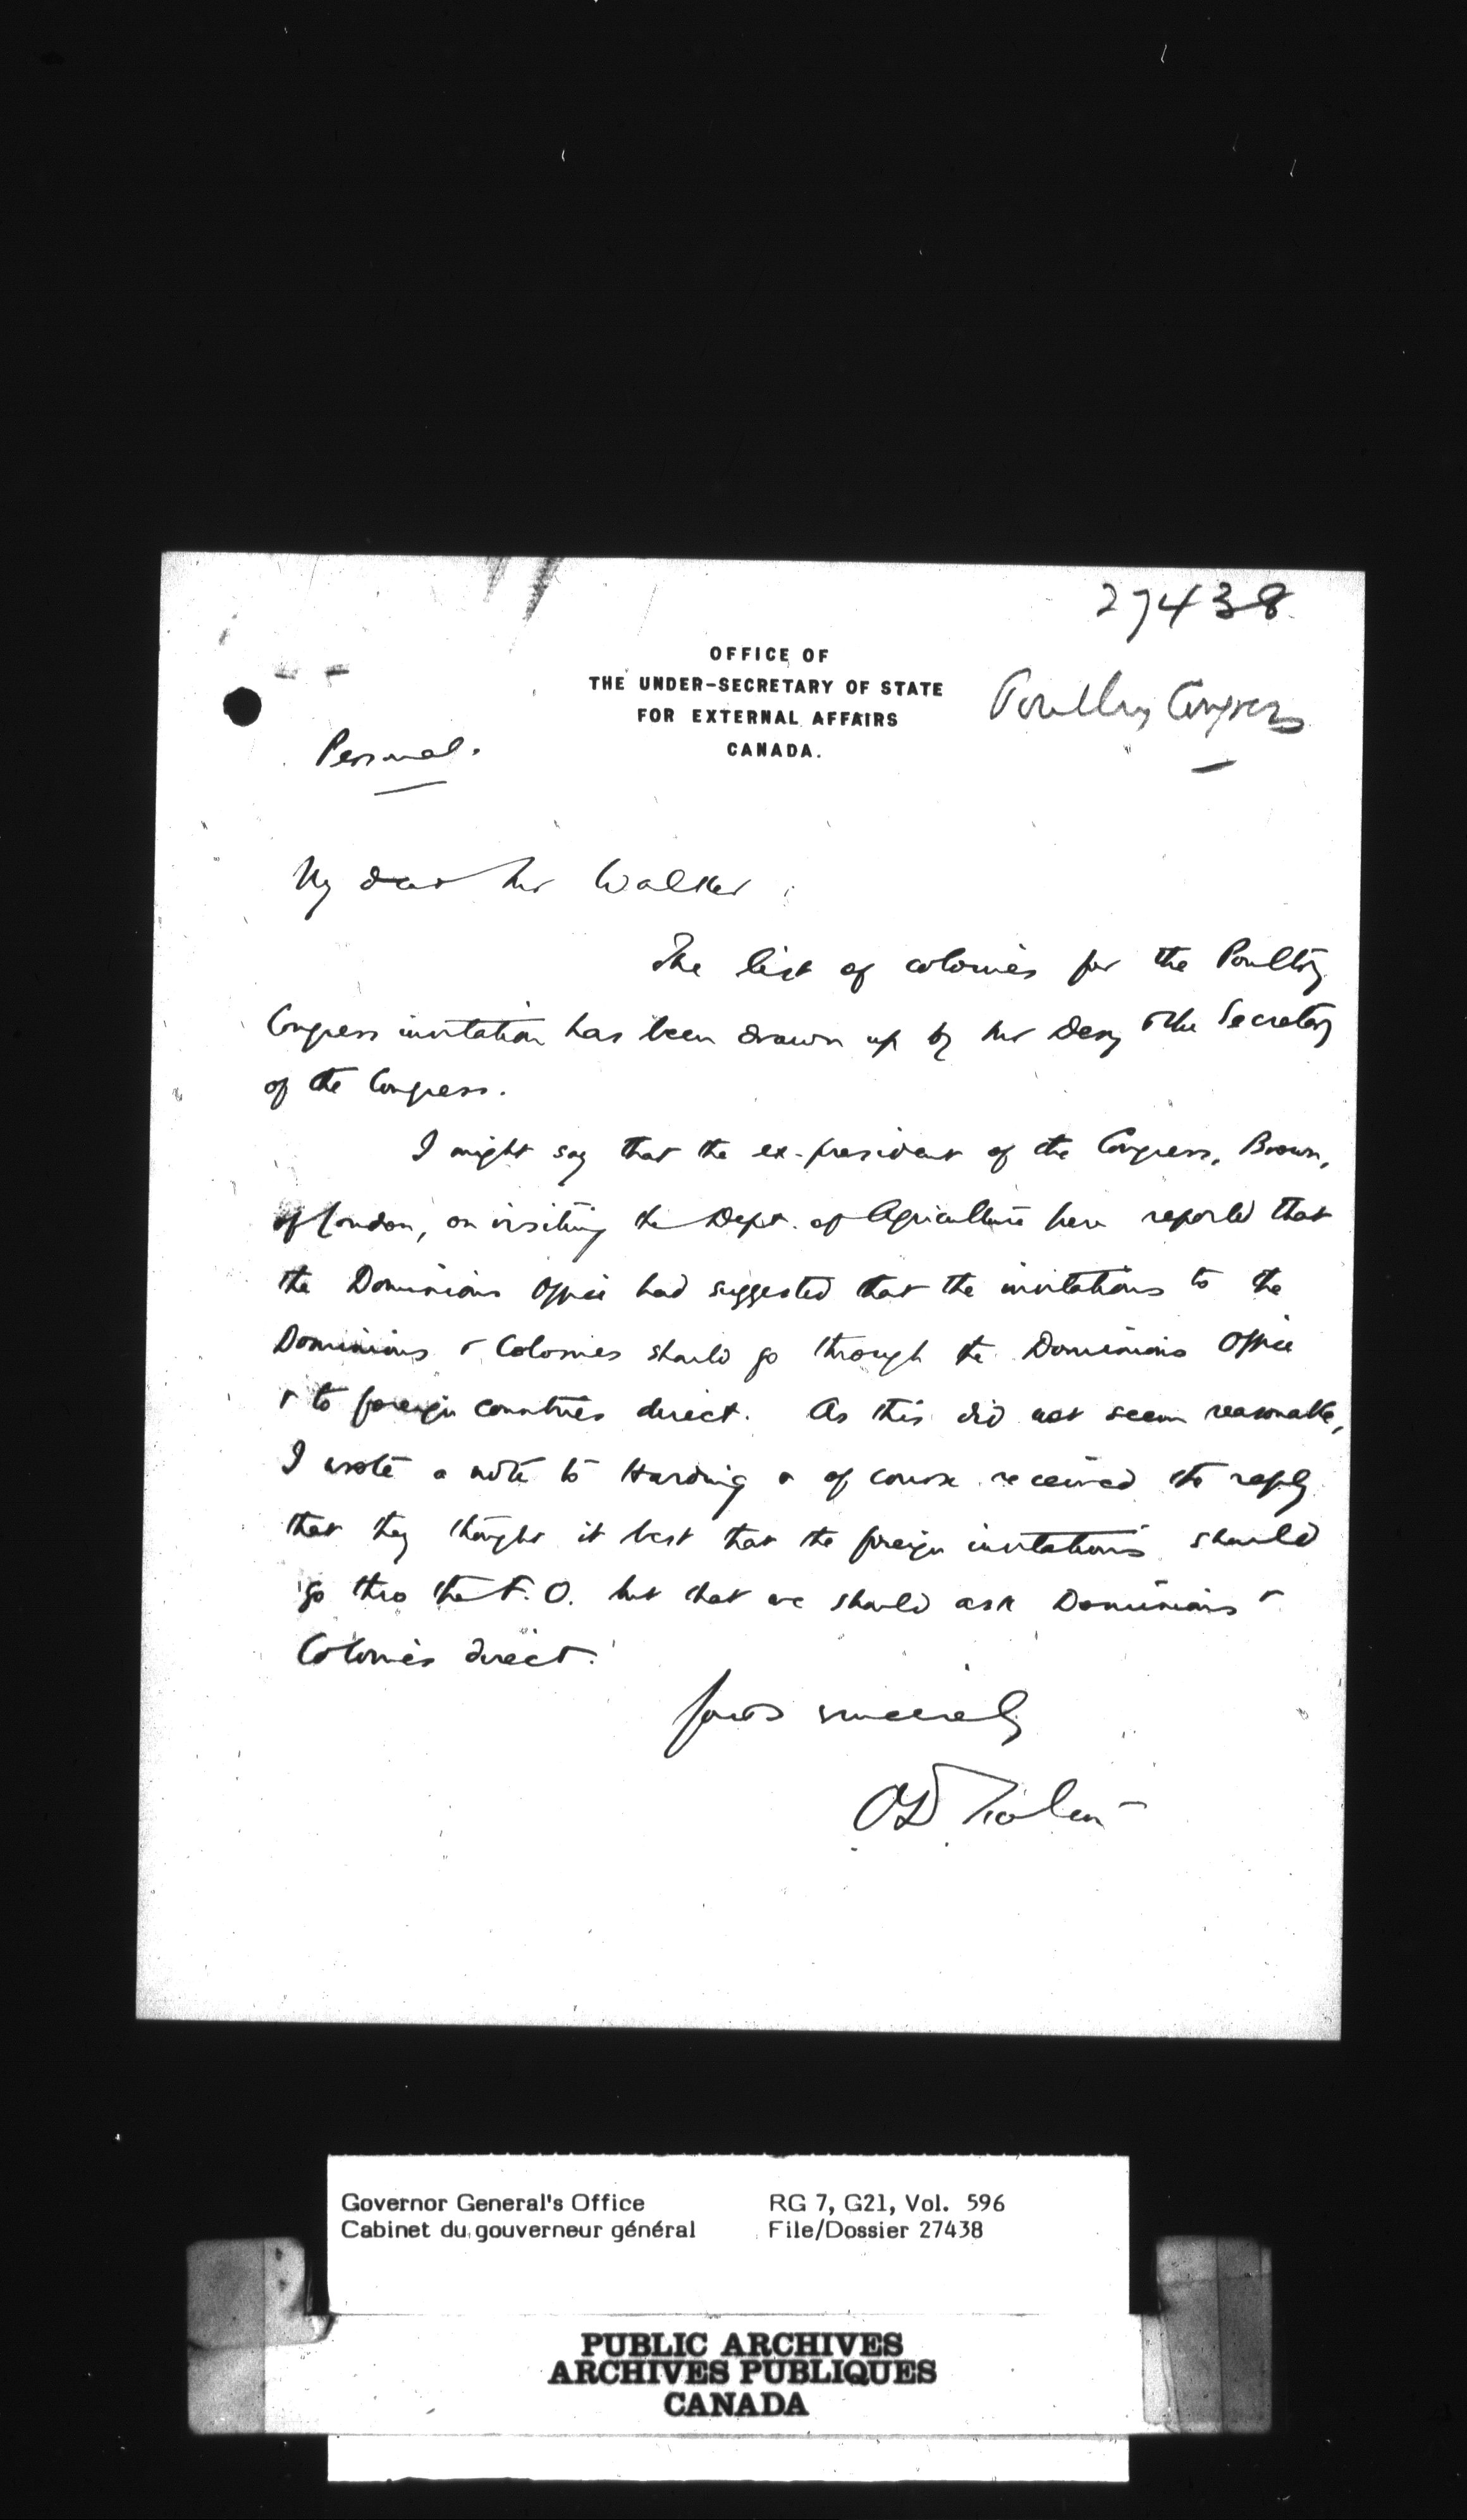 27438
OFFICE OF
THE UNDER-SECRETARY OF STATE
FOR EXTERNAL AFFAIRS
CANADA.
Poultry Congress
Personal.
My dear Mr Walker
The list of colonies for the Poultry
Congress invitation has been drawn up by Mr the Secretary
of the Congress.
I might say that the ex-president of the Congress, Brown,
of London, on visiting the Dept. of Agriculture here reported that
the Dominions Office had suggested that the invitations to the
Dominions & Colonies should go through the Dominions Office
& to foreign countries direct. As this did not seem reasonable,
I wrote a note to Harding & of course received the reply
that they thought it best that the foreign invitations should
go thro the F.O. but that we should ask Dominions &
Colonies direct.
Yours sincerely
OD Skelton
Governor General's Office
Cabinet du gouverneur général
RG 7, G21, Vol. 596
File/Dossier 27438
PUBLIC ARCHIVES
ARCHIVES PUBLIQUES
CANADA